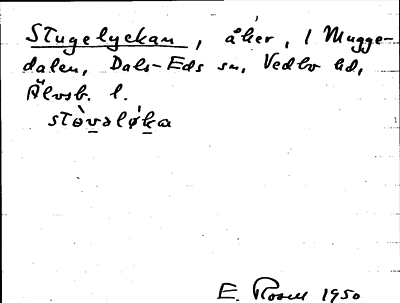 Stugelyckan, åker, i Mugge-
dalen, Dals-Eds sn, Vedbo hd,
Älvsb. l.
stòvalýka
E. Rosell 1950